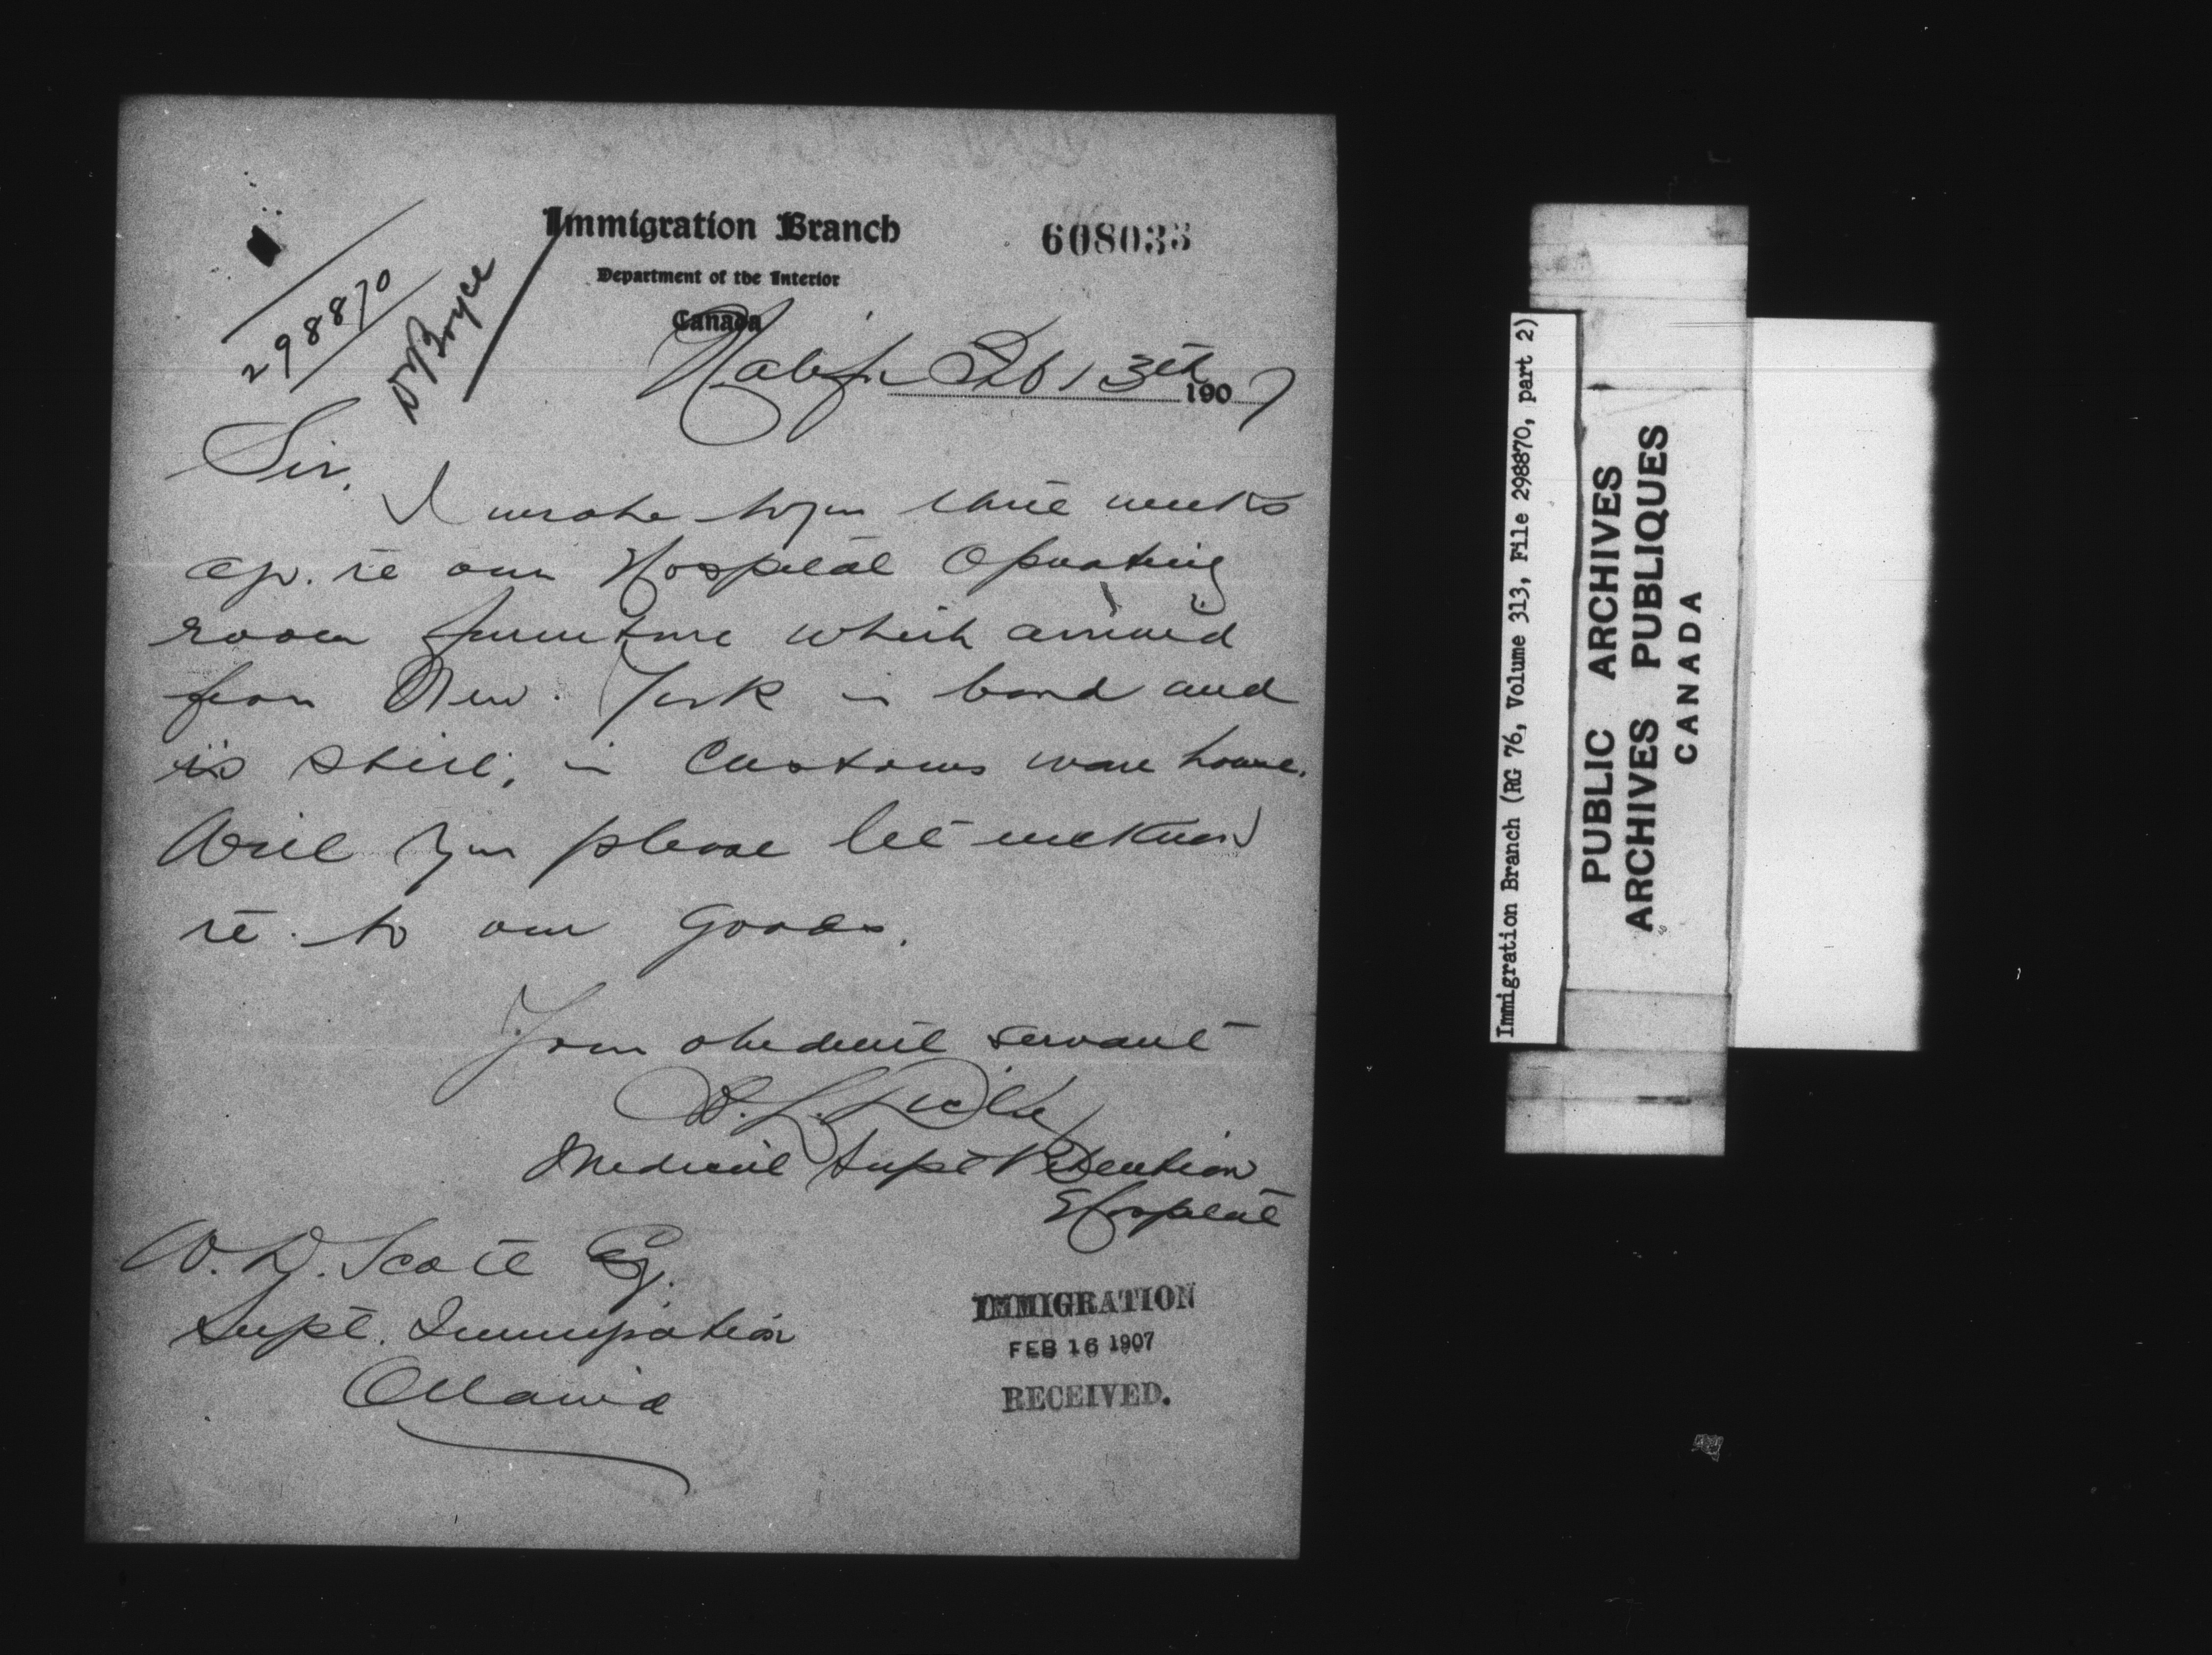 Immigration Branch
608033
Department of the Interior
Canada
298870
Dr Bryce
Halifx Feb 13th 1907
Sir,
I wrote to you three weeks
ago. re our Hospital Operating
room furniture which arrived
from New York in bond and
is still, in Customs ware house.
Will you please let me know
re to our goods.
Your obedient servant
Medical Supt Detention
Hospital
W. D. Scott Esq.
Supt. Immigration
Ottawa
IMMIGRATION
FEB 16 1907
RECEIVED.
Immigration Branch (RG 76, Volume 313, File 298870, part 2)
PUBLIC ARCHIVES
ARCHIVES PUBLIQUES
CANADA